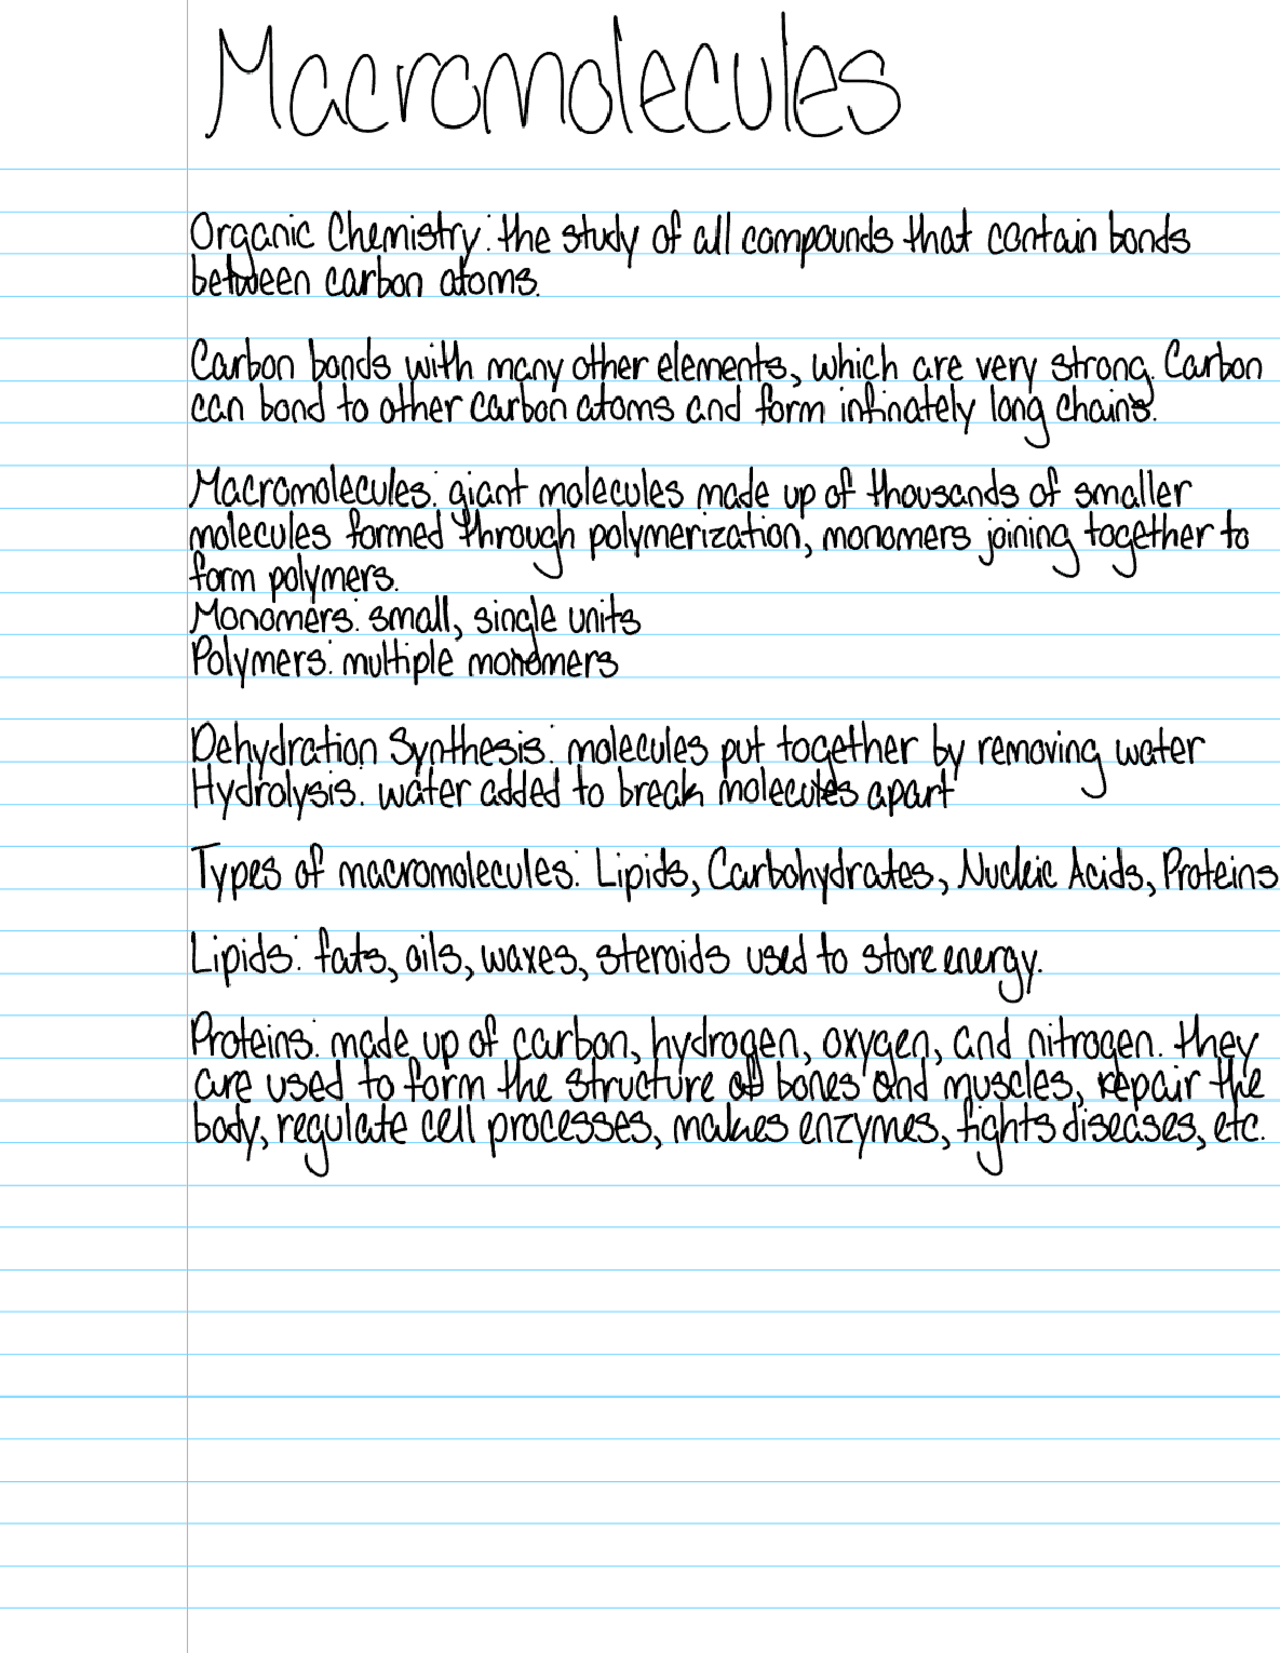 Macromolecules
Organic Chemistry: the study of all compounds that contain bonds
between carbon atoms.
Carbon bonds with many other elements, which are very strong. Carbon
can bond to other carbon atoms and form infinately long chains.
Macromolecules: giant molecules made up of thousands of smaller
molecules formed through polymerization, monomers joining together to
form polymers.
Monomers: small, single units
Polymers: multiple monomers
Dehydration Synthesis: molecules put together by removing water
Hydrolysis: water added to break molecules apart
Types of macromolecules: Lipids, Carbohydrates, Nucleic Acids, Proteins
Lipids: fats, oils, waxes, steroids used to store energy.
Proteins: made up of carbon, hydrogen, oxygen, and nitrogen. they
are used to form the structure of bones and muscles, repair the
body, regulate cell processes, makes enzymes, fights diseases, etc.